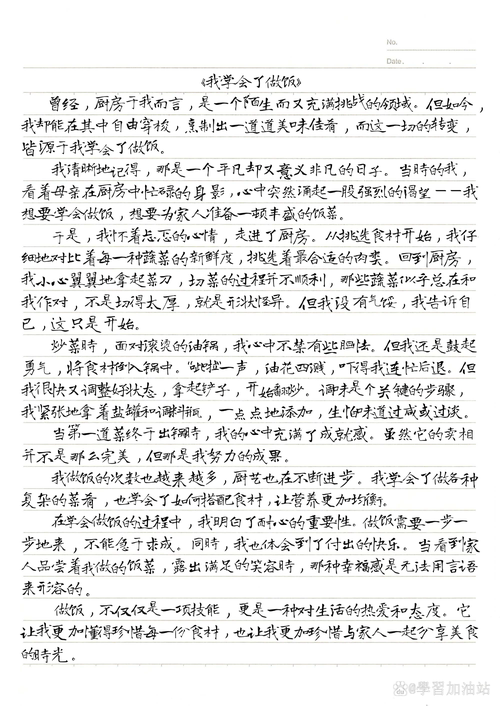 No.
Date.
《我学会了做饭》
曾经，厨房于我而言，是一个陌生而又充满挑战的领域。但如今，
我却能在其中自由穿梭，烹制出一道道美味佳肴，而这一切的转变，
皆源于我学会了做饭。
我清晰地记得，那是一个平凡却又意义非凡的日子。当时的我，
看着母亲在厨房中忙碌的身影，心中突然涌起一股强烈的渴望——我
想要学会做饭，想要为家人准备一顿丰盛的饭菜。
于是，我怀着忐忑的心情，走进了厨房。从挑选食材开始，我仔
细地对比着每一种蔬菜的新鲜度，挑选着最合适的肉类。回到厨房，
我小心翼翼地拿起菜刀，切菜的过程并不顺利，那些蔬菜似乎总在和
我作对，不是切得太厚，就是形状怪异。但我没有气馁，我告诉自
己，这只是开始。
炒菜时，面对滚烫的油锅，我心中不禁有些胆怯。但我还是鼓起
勇气，将食材倒入锅中。“呲啦”一声，油花四溅，吓得我连忙后退。但
我很快又调整好状态，拿起铲子，开始翻炒。调味是个关键的步骤，
我紧张地拿着盐罐和调料瓶，一点点地添加，生怕味道过咸或过淡。
当第一道菜终于出锅时，我的心中充满了成就感。虽然它的卖相
并不是那么完美，但那是我努力的成果。
我做饭的次数也越来越多，厨艺也在不断进步。我学会了做各种
复杂的菜肴，也学会了如何搭配食材，让营养更加均衡。
在学会做饭的过程中，我明白了耐心的重要性。做饭需要一步一
步地来，不能急于求成。同时，我也体会到了付出的快乐。当看到家
人品尝着我做的饭菜，露出满足的笑容时，那种幸福感是无法用言语
来形容的。
做饭，不仅仅是一项技能，更是一种对生活的热爱和态度。它
让我更加懂得珍惜每一份食材，也让我更加珍惜与家人一起分享美食
的时光。
@學習加油站